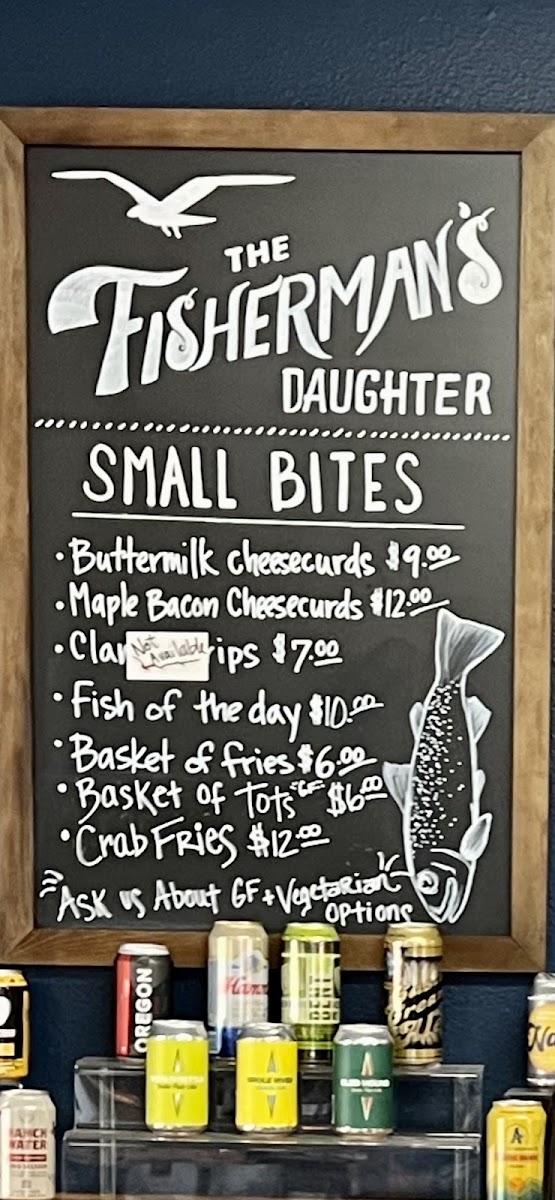 THE
FISHERMAN'S
DAUGHTER
SMALL BITES
• Buttermilk cheesecurds $9.00
• Maple Bacon Cheesecurds $12.00
• Cla Not Available ips $7.00
• Fish of the day $10.00
• Basket of fries $6.00
• Basket of Tots "GF" $6.00
• Crab Fries $12.00
Ask us About GF + Vegetarian
Options
OREGON
RANCH
WATER